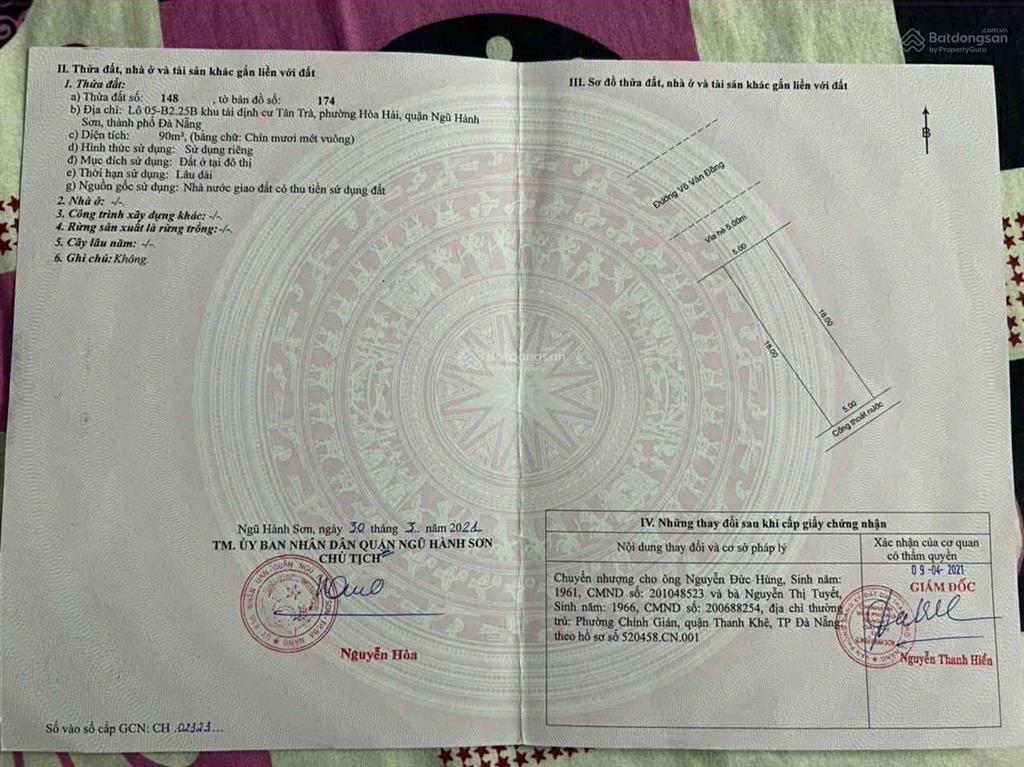 Batdongsan
.com.vn
by PropertyGuru
II. Thửa đất, nhà ở và tài sản khác gắn liền với đất
1. Thửa đất:
a) Thửa đất số: 148 , tờ bản đồ số: 174
b) Địa chỉ: Lô 05-B2.25B khu tái định cư Tân Trà, phường Hòa Hải, quận Ngũ Hành
Sơn, thành phố Đà Nẵng
c) Diện tích: 90m², (bằng chữ: Chín mươi mét vuông)
d) Hình thức sử dụng: Sử dụng riêng
đ) Mục đích sử dụng: Đất ở tại đô thị
e) Thời hạn sử dụng: Lâu dài
g) Nguồn gốc sử dụng: Nhà nước giao đất có thu tiền sử dụng đất
2. Nhà ở: -/-.
3. Công trình xây dựng khác: -/-.
4. Rừng sản xuất là rừng trồng:-/-.
5. Cây lâu năm: -/-.
6. Ghi chú: Không.
Ngũ Hành Sơn, ngày 30 tháng 3 năm 2021
TM. ỦY BAN NHÂN DÂN QUẬN NGŨ HÀNH SƠN
CHỦ TỊCH
Nguyễn Hòa
Số vào sổ cấp GCN: CH 02323...
III. Sơ đồ thửa đất, nhà ở và tài sản khác gắn liền với đất
B
Đường Võ Văn Đồng
Vỉa hè 5.00m
5.00
18.00
18.00
5.00
Cống thoát nước
Batdongsan
by PropertyGuru
IV. Những thay đổi sau khi cấp giấy chứng nhận
Nội dung thay đổi và cơ sở pháp lý
Xác nhận của cơ quan
có thẩm quyền
Chuyển nhượng cho ông Nguyễn Đức Hùng, Sinh năm:
1961, CMND số: 201048523 và bà Nguyễn Thị Tuyết,
Sinh năm: 1966, CMND số: 200688254, địa chỉ thường
trú: Phường Chính Gián, quận Thanh Khê, TP Đà Nẵng
theo hồ sơ số 520458.CN.001
09-04-2021
GIÁM ĐỐC
Nguyễn Thanh Hiển